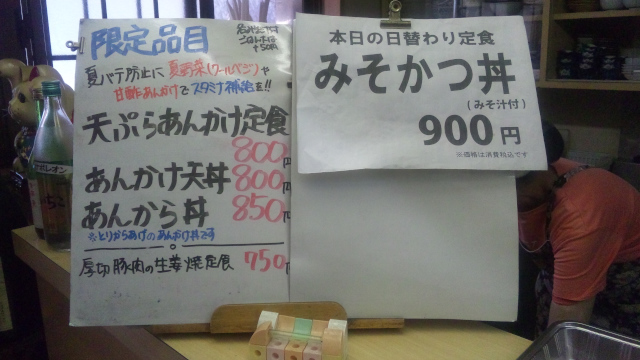 限定品目
夏バテ防止に夏野菜(クールベジ)や
甘酢あんかけでスタミナ補給を!!
天ぷらあんかけ定食
800円
あんかけ天丼 800円
あんから丼 850円
※とりからあげのあんかけ丼です
厚切豚肉の生姜焼定食 750円
本日の日替わり定食
みそかつ丼
(みそ汁付)
900円
※価格は消費税込です